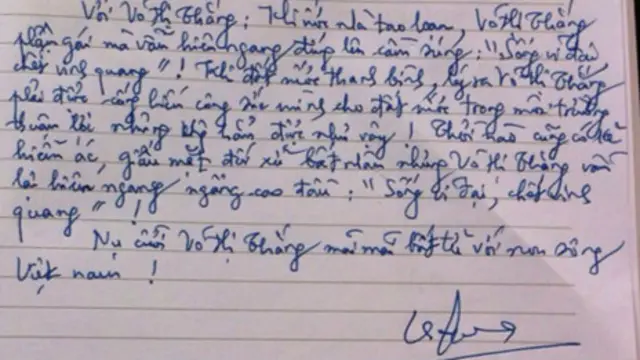 Với Võ Thị Thắng: Khi nước nhà tao loạn, Võ Thị Thắng
phận gái mà vẫn hiên ngang đứng lên cầm súng: "Sống vĩ đại,
chết vinh quang"! Khi đất nước thanh bình, lý ra Võ Thị Thắng
phải được cống hiến công sức mình cho đất nước trong môi trường
thuận lợi nhưng khó hẳn được như vậy! Thời nào cũng có kẻ
hiểm ác, giấu mặt đối xử bất nhân nhưng Võ Thị Thắng vẫn
lại hiên ngang ngẩng cao đầu: "Sống vĩ đại, chết vinh
quang"!
Nụ cười Võ Thị Thắng mãi mãi bất tử với non sông
Việt nam!